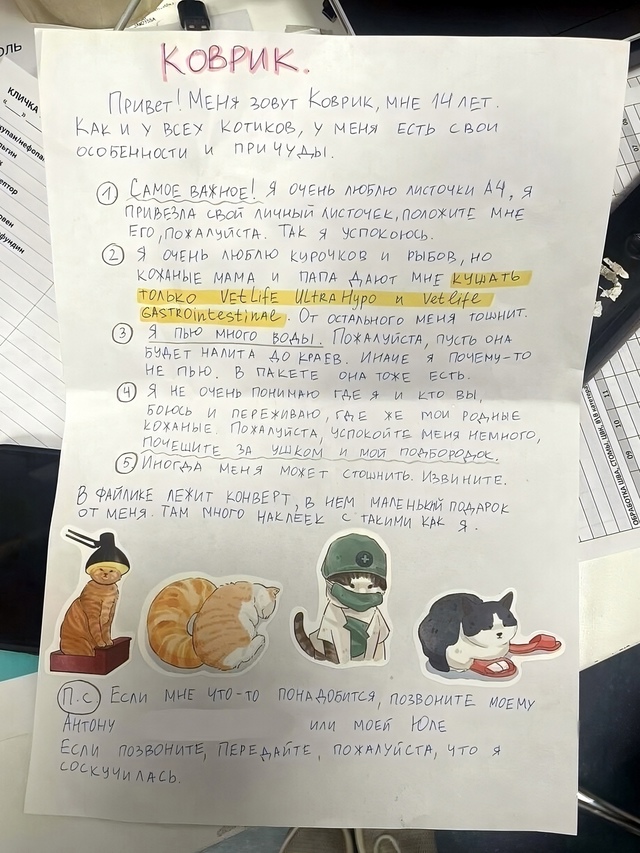 КОВРИК.
Привет! Меня зовут Коврик, мне 14 лет.
Как и у всех котиков, у меня есть свои
особенности и причуды.
① Самое важное! Я очень люблю листочки А4, я
привезла свой личный листочек, положите мне
его, пожалуйста. Так я успокоюсь.
② Я очень люблю курочков и рыбов, но
кожаные мама и папа дают мне кушать
только VetLife UltraHypo и Vetlife
Gastrointestinal. От остального меня тошнит.
③ Я пью много воды. Пожалуйста, пусть она
будет налита до краев. Иначе я почему-то
не пью. В пакете она тоже есть.
④ Я не очень понимаю где я и кто вы,
боюсь и переживаю, где же мои родные
кожаные. Пожалуйста, успокойте меня немного,
почешите за ушком и мой подбородок.
⑤ Иногда меня может стошнить. Извините.
В файлике лежит конверт, в нем маленький подарок
от меня. Там много наклеек с такими как я.
П.с Если мне что-то понадобится, позвоните моему
Антону или моей Юле
Если позвоните, передайте, пожалуйста, что я
соскучилась.
КЛИЧКА